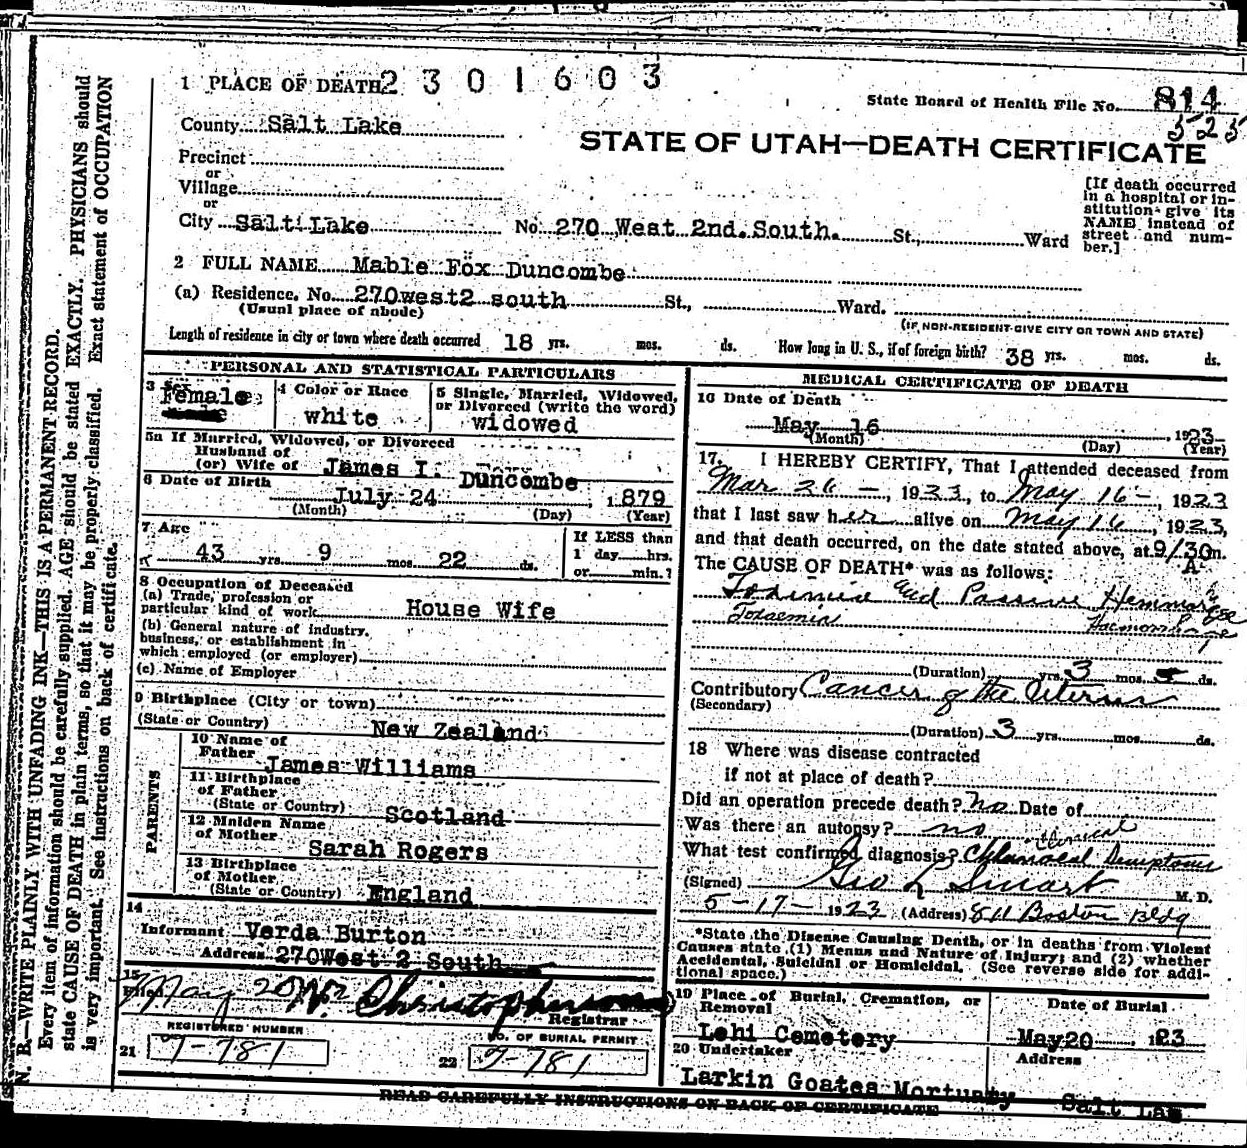 1 PLACE OF DEATH 2301603
State Board of Health File No. 814
525
County Salt Lake
STATE OF UTAH—DEATH CERTIFICATE
Precinct
or
Village
or
City Salt Lake No. 270 West 2nd. South. St., Ward
[If death occurred in a hospital or institution give its NAME instead of street and number.]
2 FULL NAME Mable Fox Duncombe
(a) Residence. No. 270west2 south St., Ward.
(Usual place of abode)
(IF NON-RESIDENT GIVE CITY OR TOWN AND STATE)
Length of residence in city or town where death occurred 18 yrs. mos. ds. How long in U. S., if of foreign birth? 38 yrs. mos. ds.
PERSONAL AND STATISTICAL PARTICULARS
3 Sex
Female
4 Color or Race
white
5 Single, Married, Widowed,
or Divorced (write the word)
widowed
5a If Married, Widowed, or Divorced
Husband of
(or) Wife of James I. Duncombe
6 Date of Birth
July 24 1879
(Month) (Day) (Year)
7 Age
43 yrs. 9 mos. 22 ds.
If LESS than
1 day hrs.
or min.?
8 Occupation of Deceased
(a) Trade, profession or
particular kind of work House Wife
(b) General nature of industry,
business, or establishment in
which employed (or employer)
(c) Name of Employer
9 Birthplace (City or town)
(State or Country) New Zealand
PARENTS
10 Name of
Father James Williams
11 Birthplace
of Father
(State or Country) Scotland
12 Maiden Name
of Mother
Sarah Rogers
13 Birthplace
of Mother
(State or Country) England
14
Informant Verda Burton
Address 270West 2 South
15
Filed May 20 W. Christopherson
Registrar
REGISTERED NUMBER
21 7-781
NO. OF BURIAL PERMIT
22 7-781
MEDICAL CERTIFICATE OF DEATH
16 Date of Death
May 16 , 1923
(Month) (Day) (Year)
17. I HEREBY CERTIFY, That I attended deceased from
Mar 26 —, 1923, to May 16 —, 1923
that I last saw her alive on May 16, 1923,
and that death occurred, on the date stated above, at 9/30 m.
A
The CAUSE OF DEATH* was as follows:
and Passive
Toxaemia Haemorrhage
(Duration) yrs. 3 mos. ds.
Contributory Cancer of the Uterus
(Secondary)
(Duration) 3 yrs. mos. ds.
18 Where was disease contracted
if not at place of death?
Did an operation precede death? no Date of
Was there an autopsy? no
Clinical
What test confirmed diagnosis?
(Signed) Geo L Smart M. D.
5-17-1923 (Address) 811 Boston Bldg
*State the Disease Causing Death, or in deaths from Violent
Causes state (1) Menus and Nature of Injury; and (2) whether
Accidental, Suicidal or Homicidal. (See reverse side for addi-
tional space.)
19 Place of Burial, Cremation, or
Removal
Lehi Cemetery
Date of Burial
May20 , 1923
20 Undertaker
Larkin Goates Mortuary
Address
Salt Lak
READ CAREFULLY INSTRUCTIONS ON BACK OF CERTIFICATE
N. B.—WRITE PLAINLY WITH UNFADING INK—THIS IS A PERMANENT RECORD.
Every item of information should be carefully supplied. AGE should be stated EXACTLY. PHYSICIANS should
state CAUSE OF DEATH in plain terms, so that it may be properly classified. Exact statement of OCCUPATION
is very important. See instructions on back of certificate.